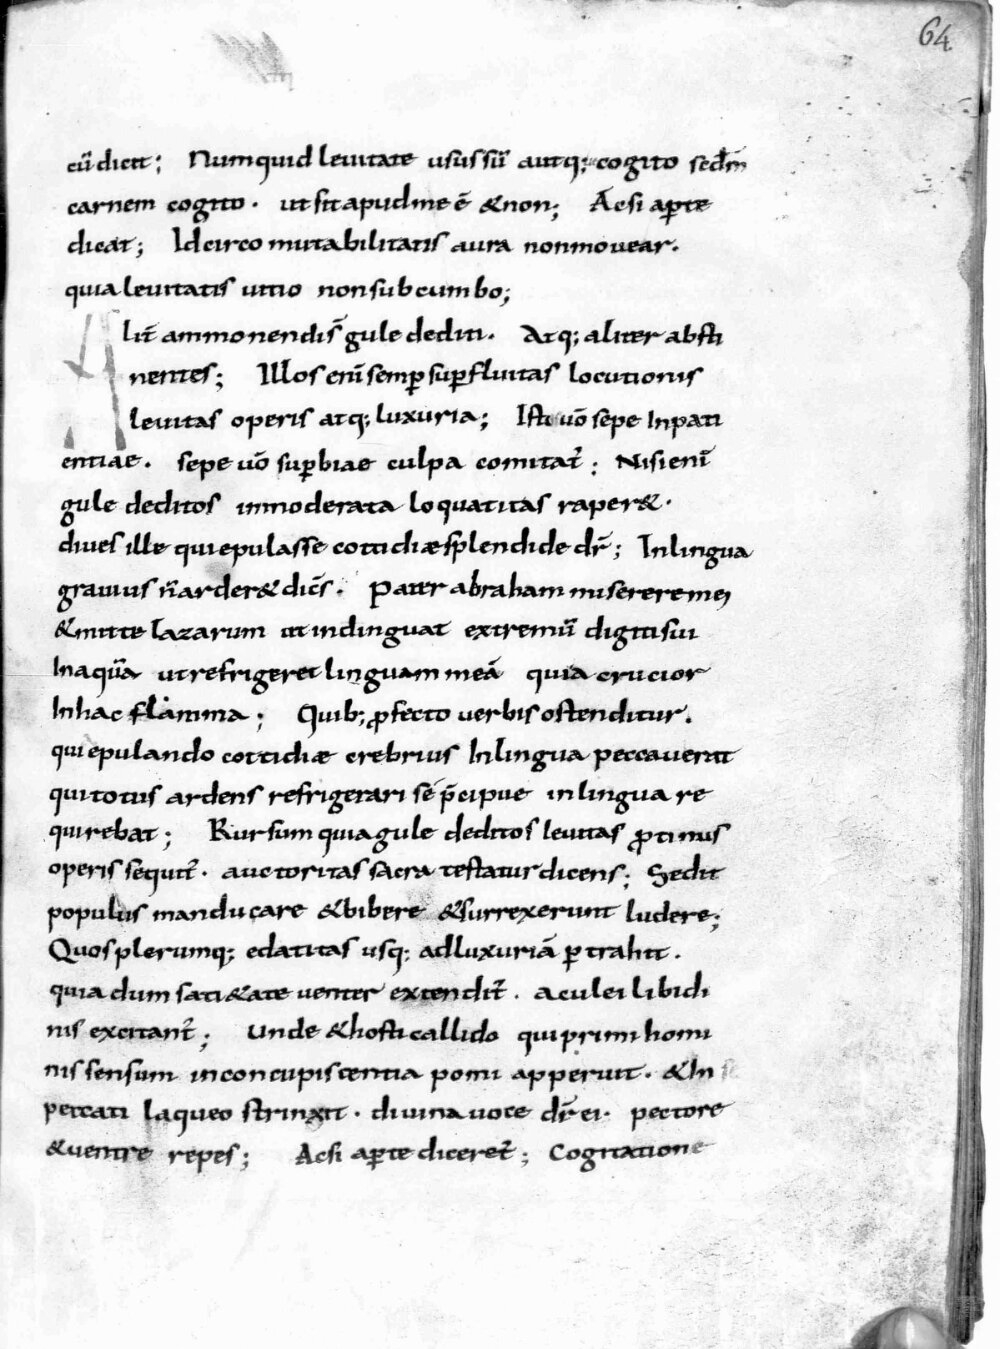 64
cū dicit; Numquid levitate usus sū autq; cogito secdm
carnem cogito. ut sit apud me ē & non; Acsi aꝑte
dicat; Idcirco mutabilitatis aura non movear.
quia levitatis vitio non subcumbo;
Alit̄ ammonendis̄ gule dediti. Atq; aliter absti
nentes; Illos enī semꝑ suꝑfluitas locutionis
levitas operis atq; luxuria; Isti vō sepe Inpati
entiae. sepe vō suꝑbiae culpa comitat̄; Nisi enī
gule deditos inmoderata loquatitas raper&.
dives ille qui epulasse cottidiæ splendide dr̄; In lingua
gravius n̄ arder& dic̄s. Pater abraham miserere mei
& mitte lazarum ut indinguat extremū digiti sui
In aquā ut refrigeret linguam meā quia crucior
In hac flamma; Quib; ꝓfecto verbis ostenditur.
qui epulando cottidiæ crebrius In lingua peccaverat
qui totus ardens refrigerari sē p̄cipue in lingua re
quirebat; Rursum quia gule deditos levitas ꝓtinus
operis sequit̄. auctoritas sacra testatur dicens; Sedit
populus manducare & bibere & surrexerunt ludere;
Quos plerumq; edatitas usq; ad luxuriā ꝑtrahit.
quia dum sati&ate venter extendit̄. aculei libidi
nis excitant̄; Unde & hosti callido qui primi homi
nis sensum in concupistentia pomi apperuit. & In
peccati laqueo strinxit. divina voce dr̄ ei. pectore
& ventre repes; Acsi aꝑte diceret̄; Cogitatione